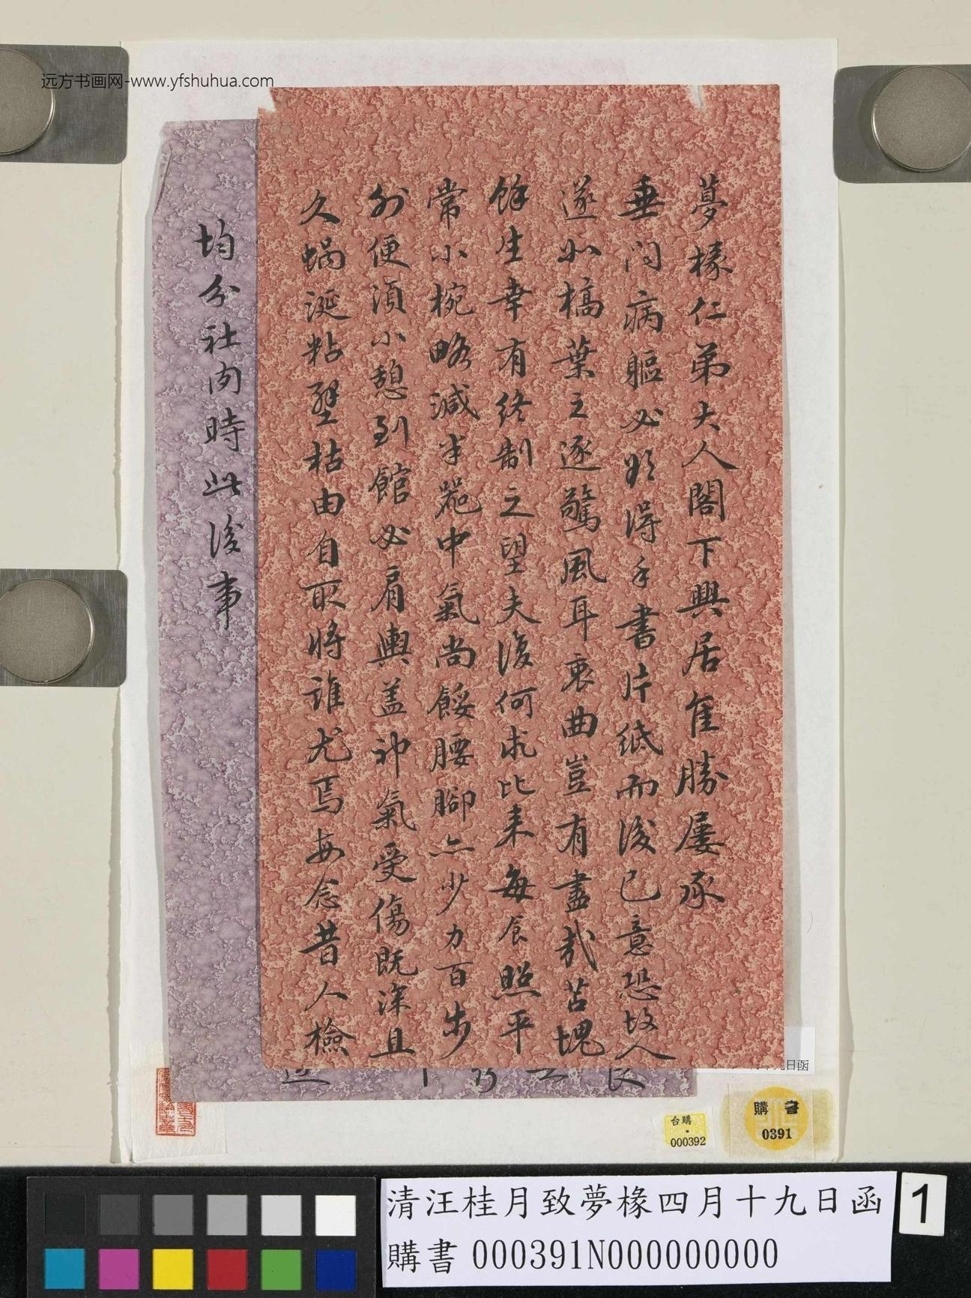 远方书画网-www.yfshuhua.com
夢椽仁弟大人閣下興居佳勝屢承
垂问病軀必形得手書片紙而後已意恐故人
遂如槁葉之逐驚風耳衷曲豈有盡哉苫塊
餘生幸有終制之望夫復何求比来每食照平
常小椀略减半菀中氣尚餒腰脚亦少力百步
外便須小憩到館必肩輿盖神氣受傷既深且
久蝸涎粘壁枯由自取將誰尤焉每念昔人檢
均分社内時此後事
日函
台購
000392
購書
0391
清汪桂月致夢椽四月十九日函
購書 000391N000000000
1